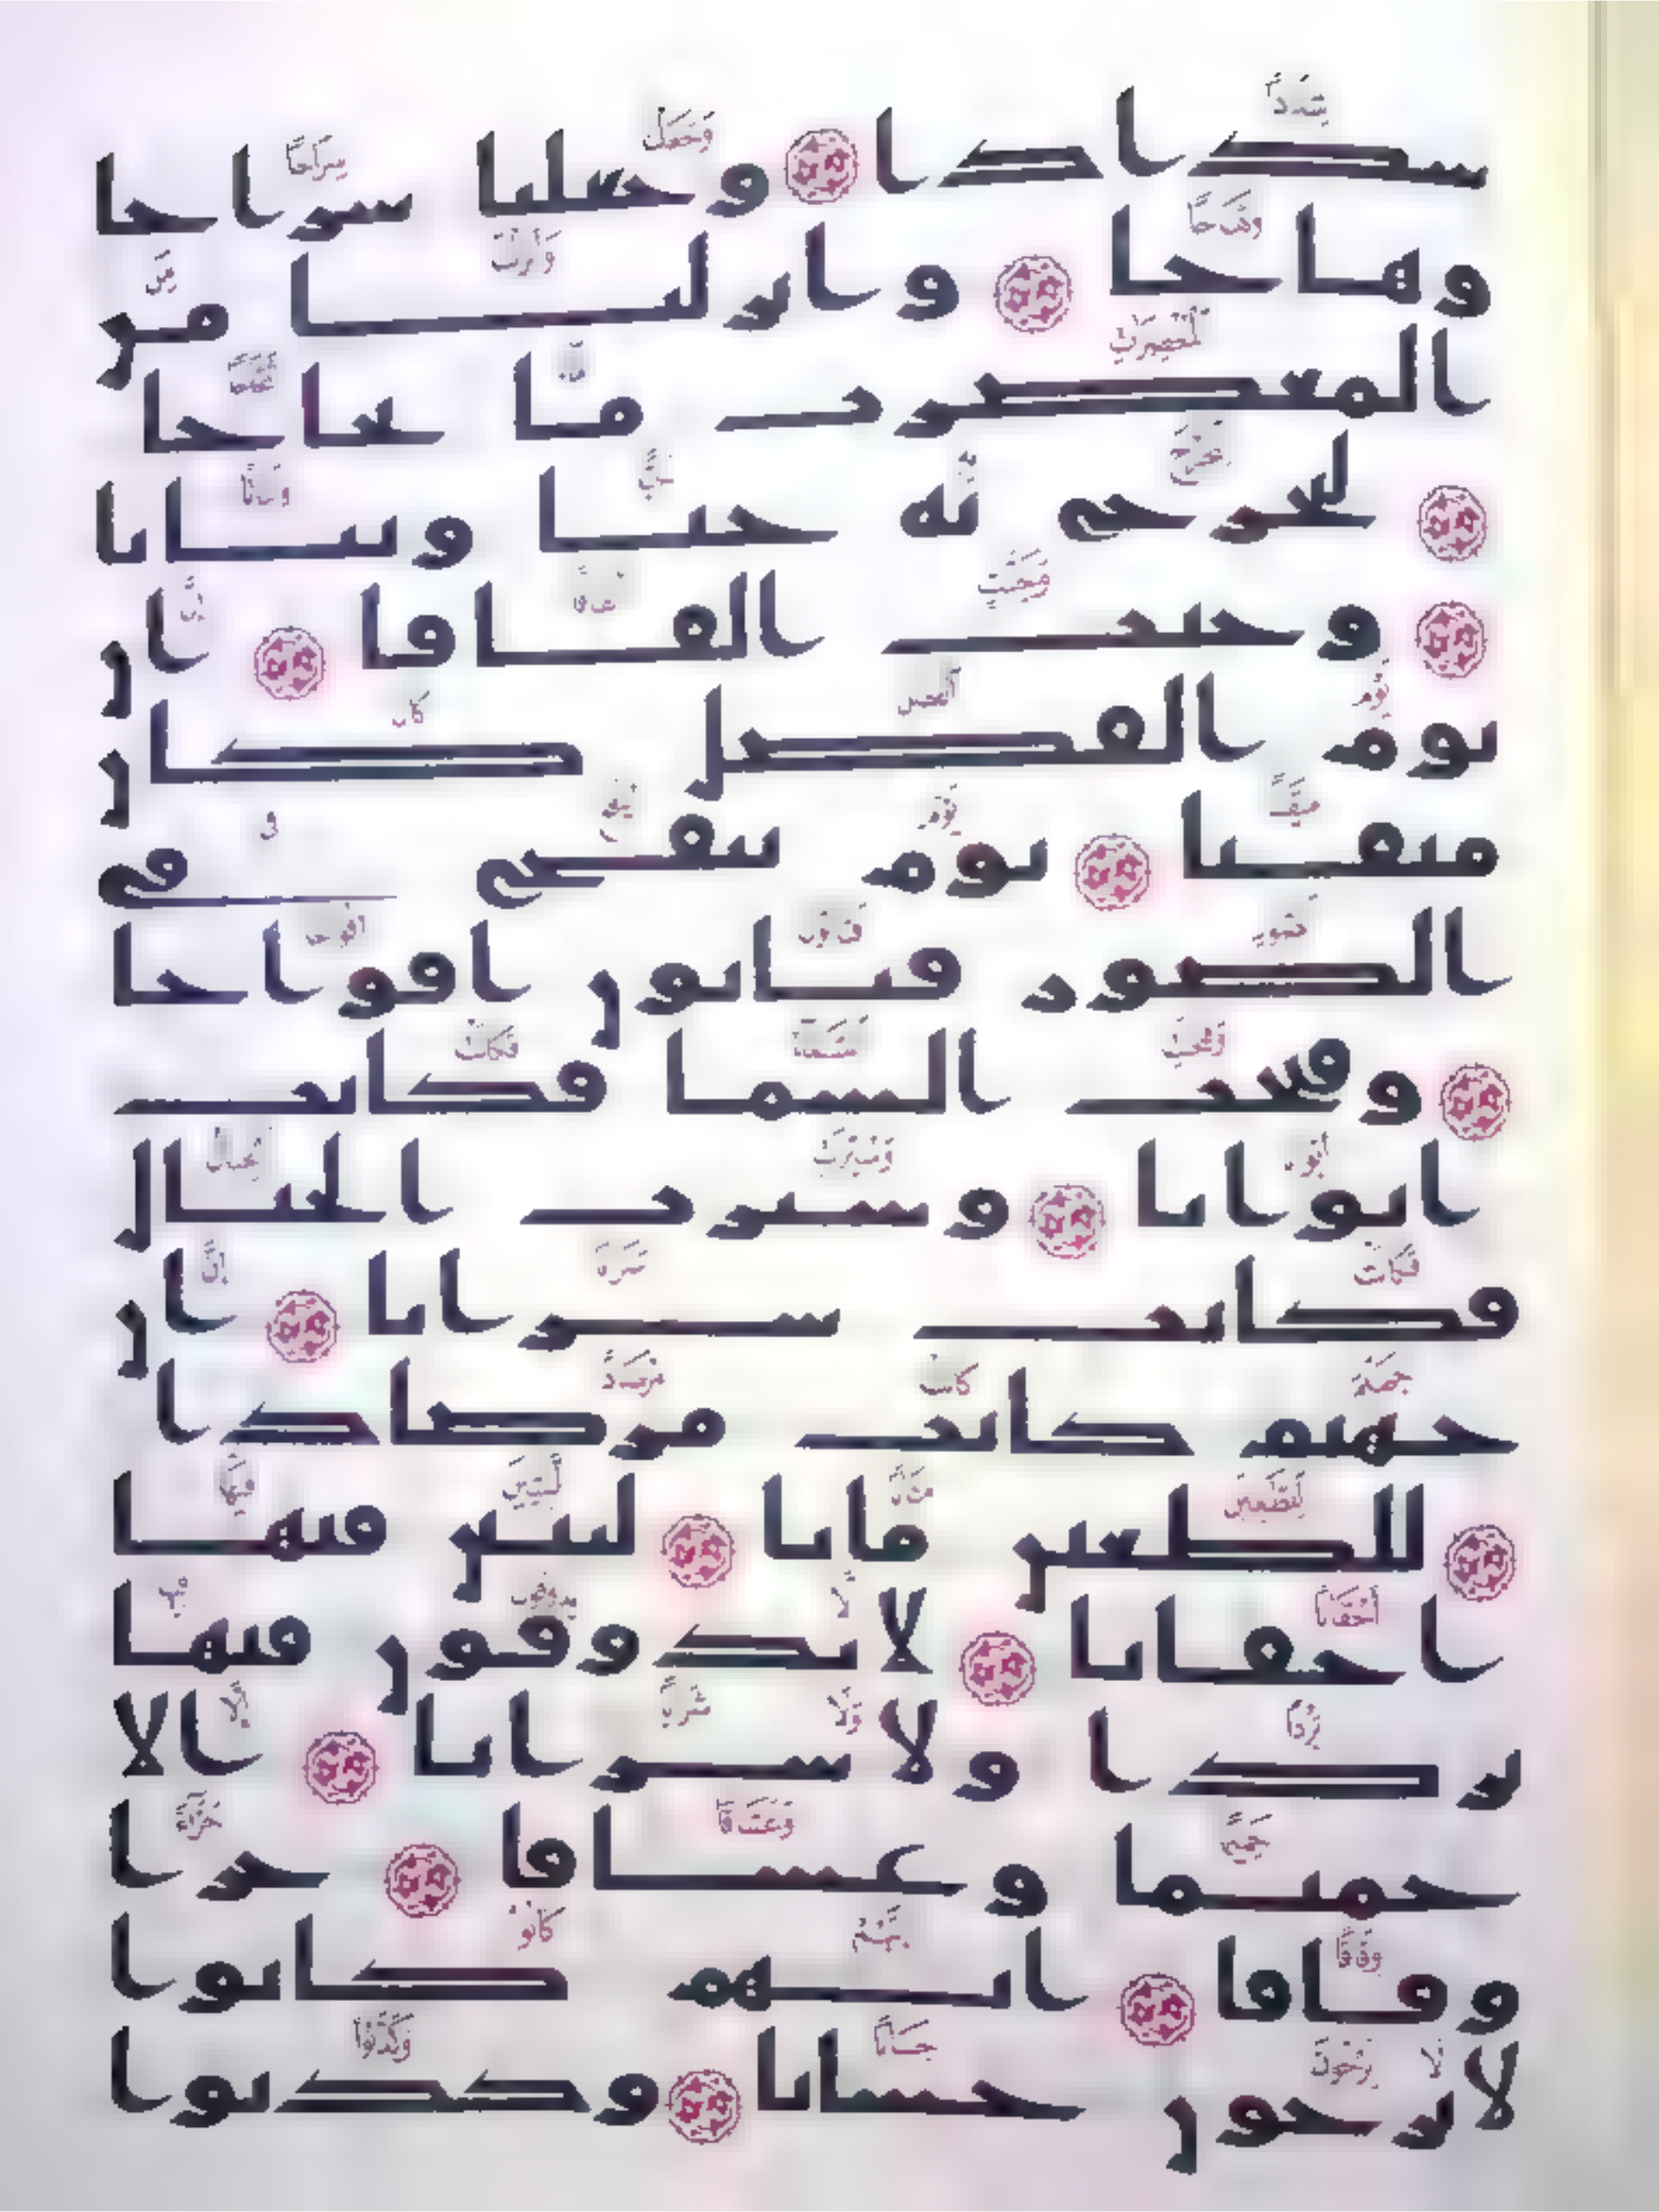 سدادا وجعلنا سراجا
وهاجا وانزلنا من
المعصرت ما ثجاجا
لنخرج به حبا ونباتا
وجنت الفافا ان
يوم الفصل كان
ميقتا يوم ينفخ في
الصور فتاتون افواجا
وفتحت السما فكانت
ابوابا وسيرت الجبال
فكانت سرابا ان
جهنم كانت مرصادا
للطغين مابا لبثين فيها
احقابا لا يذوقون فيها
بردا ولا شرابا الا
حميما وغساقا جزا
وفاقا انهم كانوا
لا يرجون حسابا وكذبوا